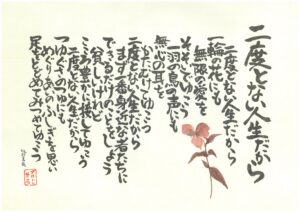 二度とない人生だから
二度とない人生だから
一輪の花にも
無限の愛を
そそいでゆこう
一羽の鳥の声にも
無心の耳を
かたむけてゆこう
二度とない人生だから
まず一番身近な者たちに
できるだけのことをしよう
貧しいけれど
こころ豊かに接してゆこう
二度とない人生だから
つゆくさのつゆにも
めぐりあいのふしぎを思い
足をとどめてみつめてゆこう